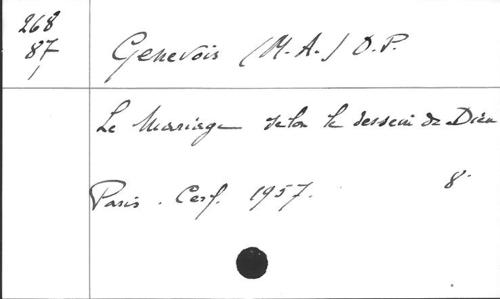 268
87
Genevois (M.-A.) O.P.
Le Mariage selon le dessein de Dieu
Paris. Cerf. 1957. 8°